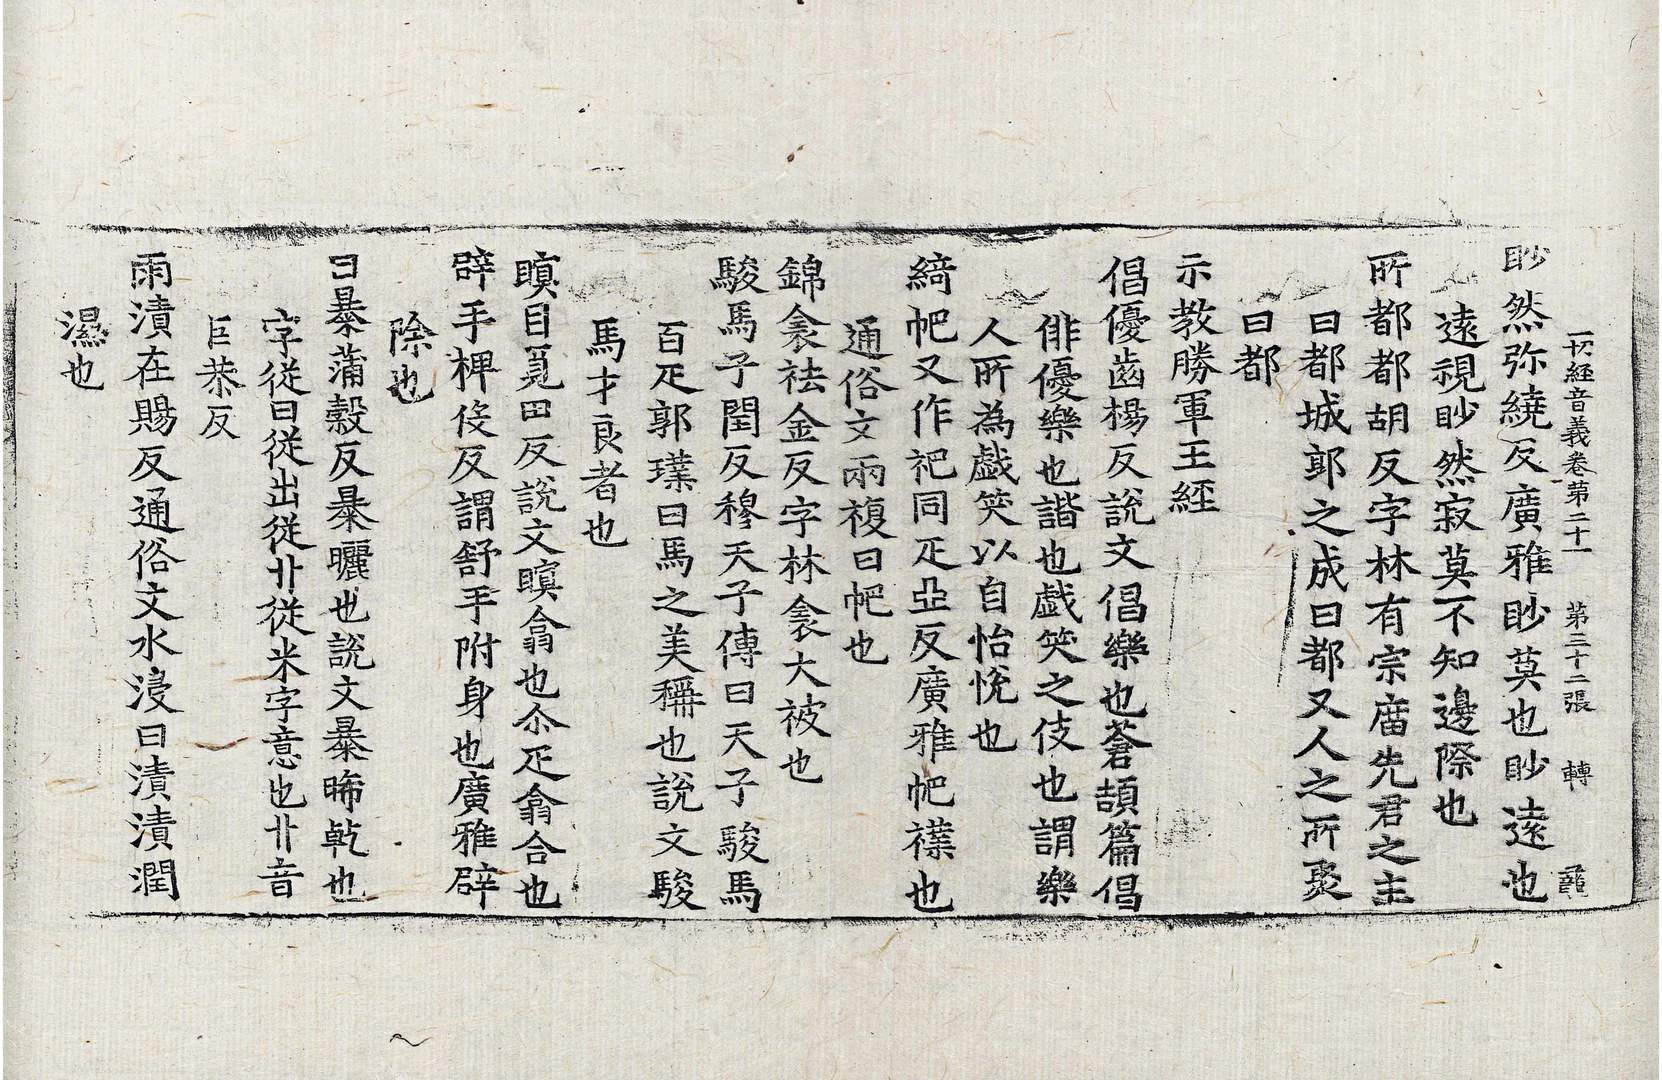 一切経音義卷第二十一　第三十二張　轉
眇然弥繞反廣雅眇莫也眇遠也
遠視眇然寂莫不知邊際也
所都都胡反字林有宗庿先君之主
曰都城郭之成曰都又人之所聚
曰都
示教勝軍王經
倡優齒楊反說文倡樂也蒼頡篇倡
俳優樂也諧也戱笑之伎也謂樂
人所為戱笑以自怡悅也
綺帊又作祀同疋亞反廣雅帊襆也
通俗文兩複曰帊也
錦衾祛金反字林衾大被也
駿馬子閏反穆天子傳曰天子駿馬
百疋郭璞曰馬之美稱也說文駿
馬才良者也
瞑目覓田反說文瞑翕也尒疋翕合也
辟手椑役反謂舒手附身也廣雅辟
除也
日暴蒲糓反暴曬也說文暴晞乾也
字從日從出從廾從米字意也廾音
巨恭反
雨漬在賜反通俗文水浸曰漬漬潤
濕也